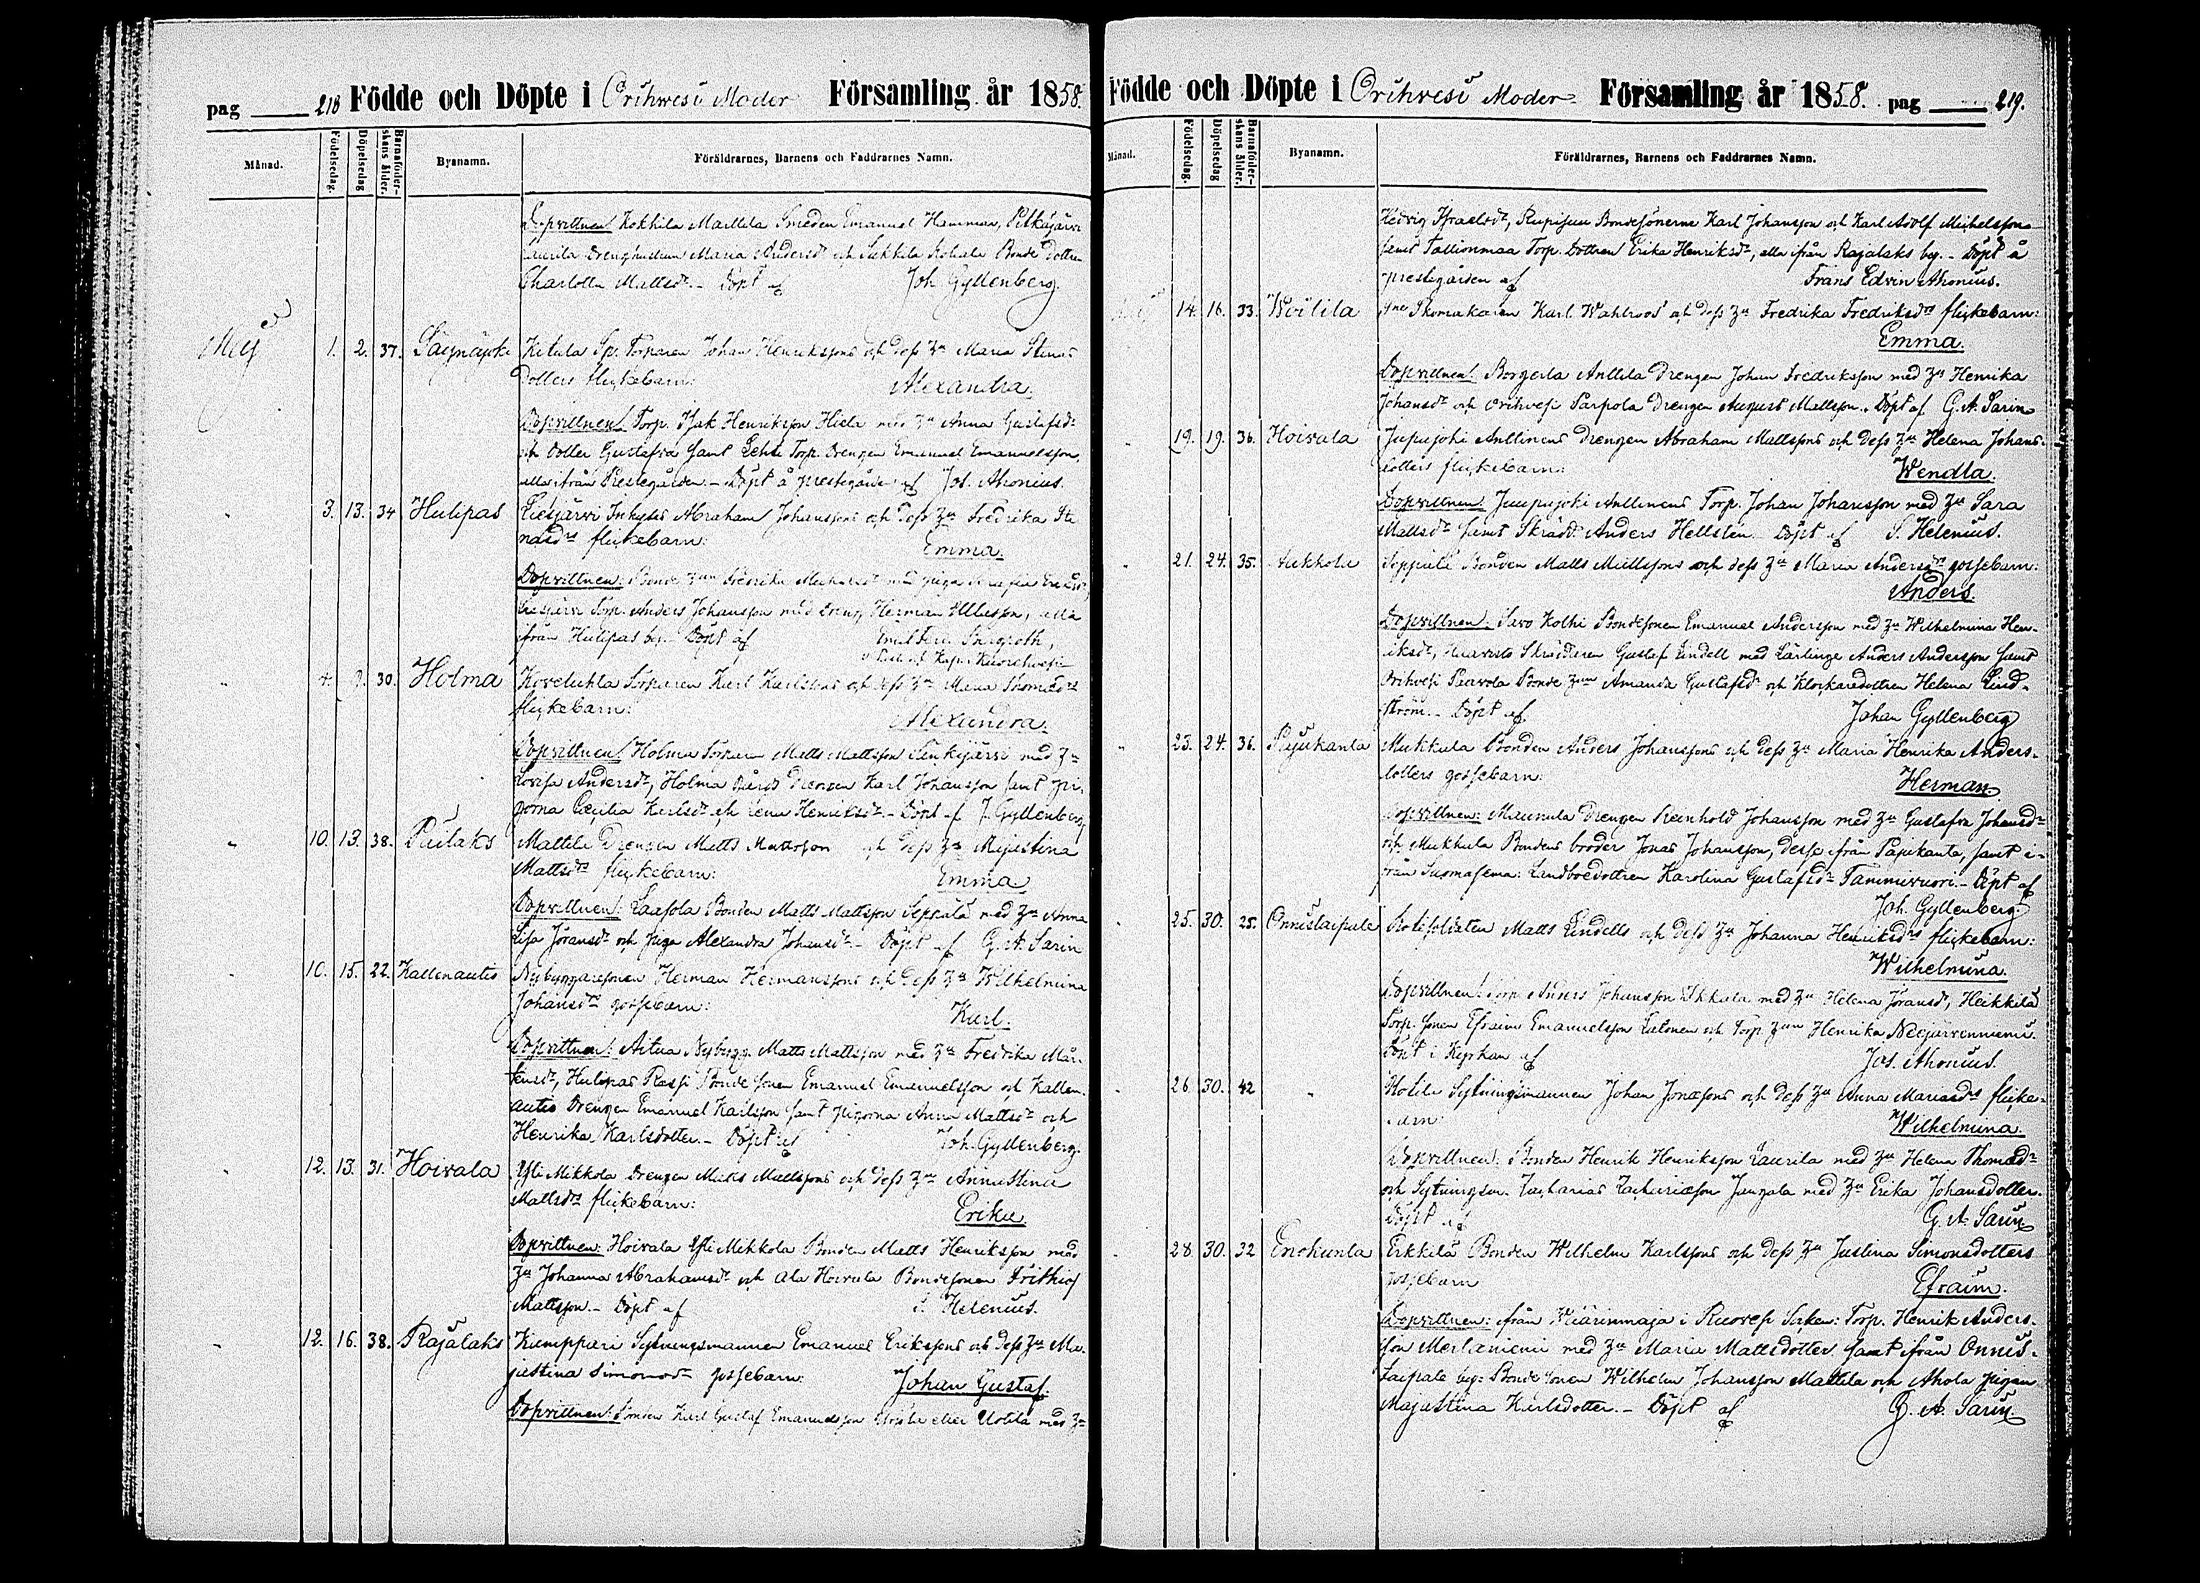 pag 218 Födde och Döpte i Orihwesi Moder Församling år 1858.
Månad. Födelsedag. Döpelsedag Barnaföderskans ålder. Byanamn. Föräldrarnes, Barnens och Faddrarnes Namn.
Dopvittnen: Kokkila Mattila Smeden Emanuel Pitkäjärvi
Maria Andersdr och Bonde Dottren
Charlotta Mattsdr - Döpt af Joh Gyllenberg.
Maj 1. 2. 37. Säynäjoki Kitula Sp. Torparen Johan Henrikssons och dess Hu Maria Stinas
Dotters flickebarn: Alexandra.
Dopvittnen: Torp. Isak Henriksson Hiela med Hu Anna Gustafsdr
och Dotter Gustafva samt Torp. Drengen Emanuel Emanuelsson,
alla ifrån Prestegården. - Döpt å prestegården af Jos. Ahonius.
3. 13. 34 Hulipas Liesjärvi Inhyses Abraham Johanssons och dess Hu Fredrika
flickebarn: Emma.
Dopvittnen: Bonde Hun Fredrika med piga
Liesjärvi Torp. Anders Johansson med Dreng Herman alla
ifrån Hulipas by. - Döpt af
4. 30. Holma Torparen Karl Karlssons och dess Hu Maria Thomasdrs
flickebarn: Alexandra.
Dopvittnen: Holma Torparen Matts Mattsson med Hu
Lovisa Andersdr, Holma Drengen Karl Johansson samt pi-
gorna Cecilia Karlsdr och Lena Henriksdr. - Döpt af J. Gyllenberg
10. 13. 38. Päilaks Mattila Drengen Matts Mattsson och dess Hu Majastina
Mattsdrs flickebarn: Emma
Dopvittnen: Laasola Bonden Matts Mattsson Seppälä med Hu Anna
Lisa Jöransdr och piga Alexandra Johansdr - Döpt af G. A. Sarin
10. 15. 22. Kallenautio Nybyggaresonen Herman Hermanssons och dess Hu Wilhelmina
Johansdrs gossebarn: Karl.
Dopvittnen: Nybygg. Matts Mattsson med Hu Fredrika Mår-
tensdr, Hulipas Rassi Bonde sonen Emanuel Emanuelsson och Kallen-
autio Drengen Emanuel Karlsson samt pigorna Anna Mattsdr och
Henrika Karlsdotter. - Döpt af Joh. Gyllenberg.
12. 13. 31. Hoivala Yli Mikkola Drengen Matts Mattssons och dess Hu Annastina
Mattsdrs flickebarn: Erika
Dopvittnen: Hoivala Yli Mikkola Bonden Matts Henriksson med
Hu Johanna Abrahamsdr och Ala Hoivala Bondesonen Frithiof
Mattsson. - Döpt af S. Helenius.
12. 16. 38. Rajalaks Kumppari Sytningsmannen Emanuel Erikssons och dess Hu Ma-
jastina Simonsdr gossebarn: Johan Gustaf.
Dopvittnen: Karl Gustaf Emanuelsson eller Uotila med Hu
Födde och Döpte i Orihvesi Moder- Församling år 1858. pag 219.
Månad. Födelsedag. Döpelsedag Barnaföderskans ålder. Byanamn. Föräldrarnes, Barnens och Faddrarnes Namn.
Hedvig Israelsdr, Bondesönerna Karl Johansson och Karl Adolf Michelsson
samt Tallionmaa Torp. Dottren Erika Henriksdr, alla ifrån Rajalaks by. - Döpt å
prestegården af Frans Edvin Ahonius.
Maj 14. 16. 33. Woitila Skomakaren Karl Wahlroos och dess Hu Fredrika Fredriksdrs flickebarn:
Emma.
Dopvittnen: Borgerla Anttila Drengen Johan Fredriksson med Hu Henrika
Johansdr och Orihvesi Parpola Drengen August Mattsson. Döpt af G. A. Sarin
19. 19. 36. Hoivala Juupajoki Anttinens Drengen Abraham Mattssons och dess Hu Helena Johans-
dotters flickebarn: Wendla.
Dopvittnen: Juupajoki Anttinens Torp. Johan Johansson med Hu Sara
Mattsdr samt Skrädd. Anders Hellsten. Döpt af S. Helenius.
21. 24. 35. Aukkola Seppälä Bonden Matts Mattssons och dess Hu Maria Andersdrs gossebarn:
Anders.
Dopvittnen: Savo Kothi Bondesonen Emanuel Andersson med Hu Wilhelmina Hen-
riksdr, Haavisto Skräddaren Gustaf Lindell med Lärlinge Anders Andersson samt
Orihvesi Paavola Bonde Hun Amanda Gustafsdr och Klockaredottren Helena Lind-
ström. - Döpt af Johan Gyllenberg
23. 24. 36. Pajukanta Mukkula Bonden Anders Johanssons och dess Hu Maria Henrika Anders-
dotters gossebarn: Herman
Dopvittnen: Maunula Drengen Reinhold Johansson med Hu Gustafva Johansdr
och Mukkula Bondens broder Jonas Johansson, desse ifrån Pajukanta, samt i-
från Suomasema: Landboedottren Karolina Gustafsdr Tammivuori. - Döpt af
Joh. Gyllenberg.
25. 30. 25. Onnistaipale Rotesoldaten Matts Lindells och dess Hu Johanna Henriksdrs flickebarn:
Wilhelmina.
Dopvittnen: Torp. Anders Johansson med Hu Helena Jöransdr, Heikkilä
Torp. sonen Efraim Emanuelsson Lulonen och Torp. Hun Henrika
Döpt i Kyrkan af Jos. Ahonius.
26 30. 42 " Uotila Sytningsmannen Johan Jonassons och dess Hu Anna Mariasdrs flicke-
barn Wilhelmina
Dopvittnen: Bonden Henrik Henriksson Laurila med Hu Helena Thomasdr
och Sytningsm. Zacharias Zachariasson med Hu Erika Johansdotter.
Döpt af G. A. Sarin
28. 30. 32 Enokunta Erkkilä Bonden Wilhelm Karlssons och dess Hu Justina Simonsdotters
gossebarn Efraim.
Dopvittnen: ifrån Wäärinmaja i Ruovesi Socken: Torp. Henrik Anders-
son Merlaniemi med Hu Maria Mattsdotter samt ifrån Onnis-
taipale by: Bonde sonen Wilhelm Johansson Mattila och Ahola pigan
Majastina Karlsdotter. - Döpt af G. A. Sarin.